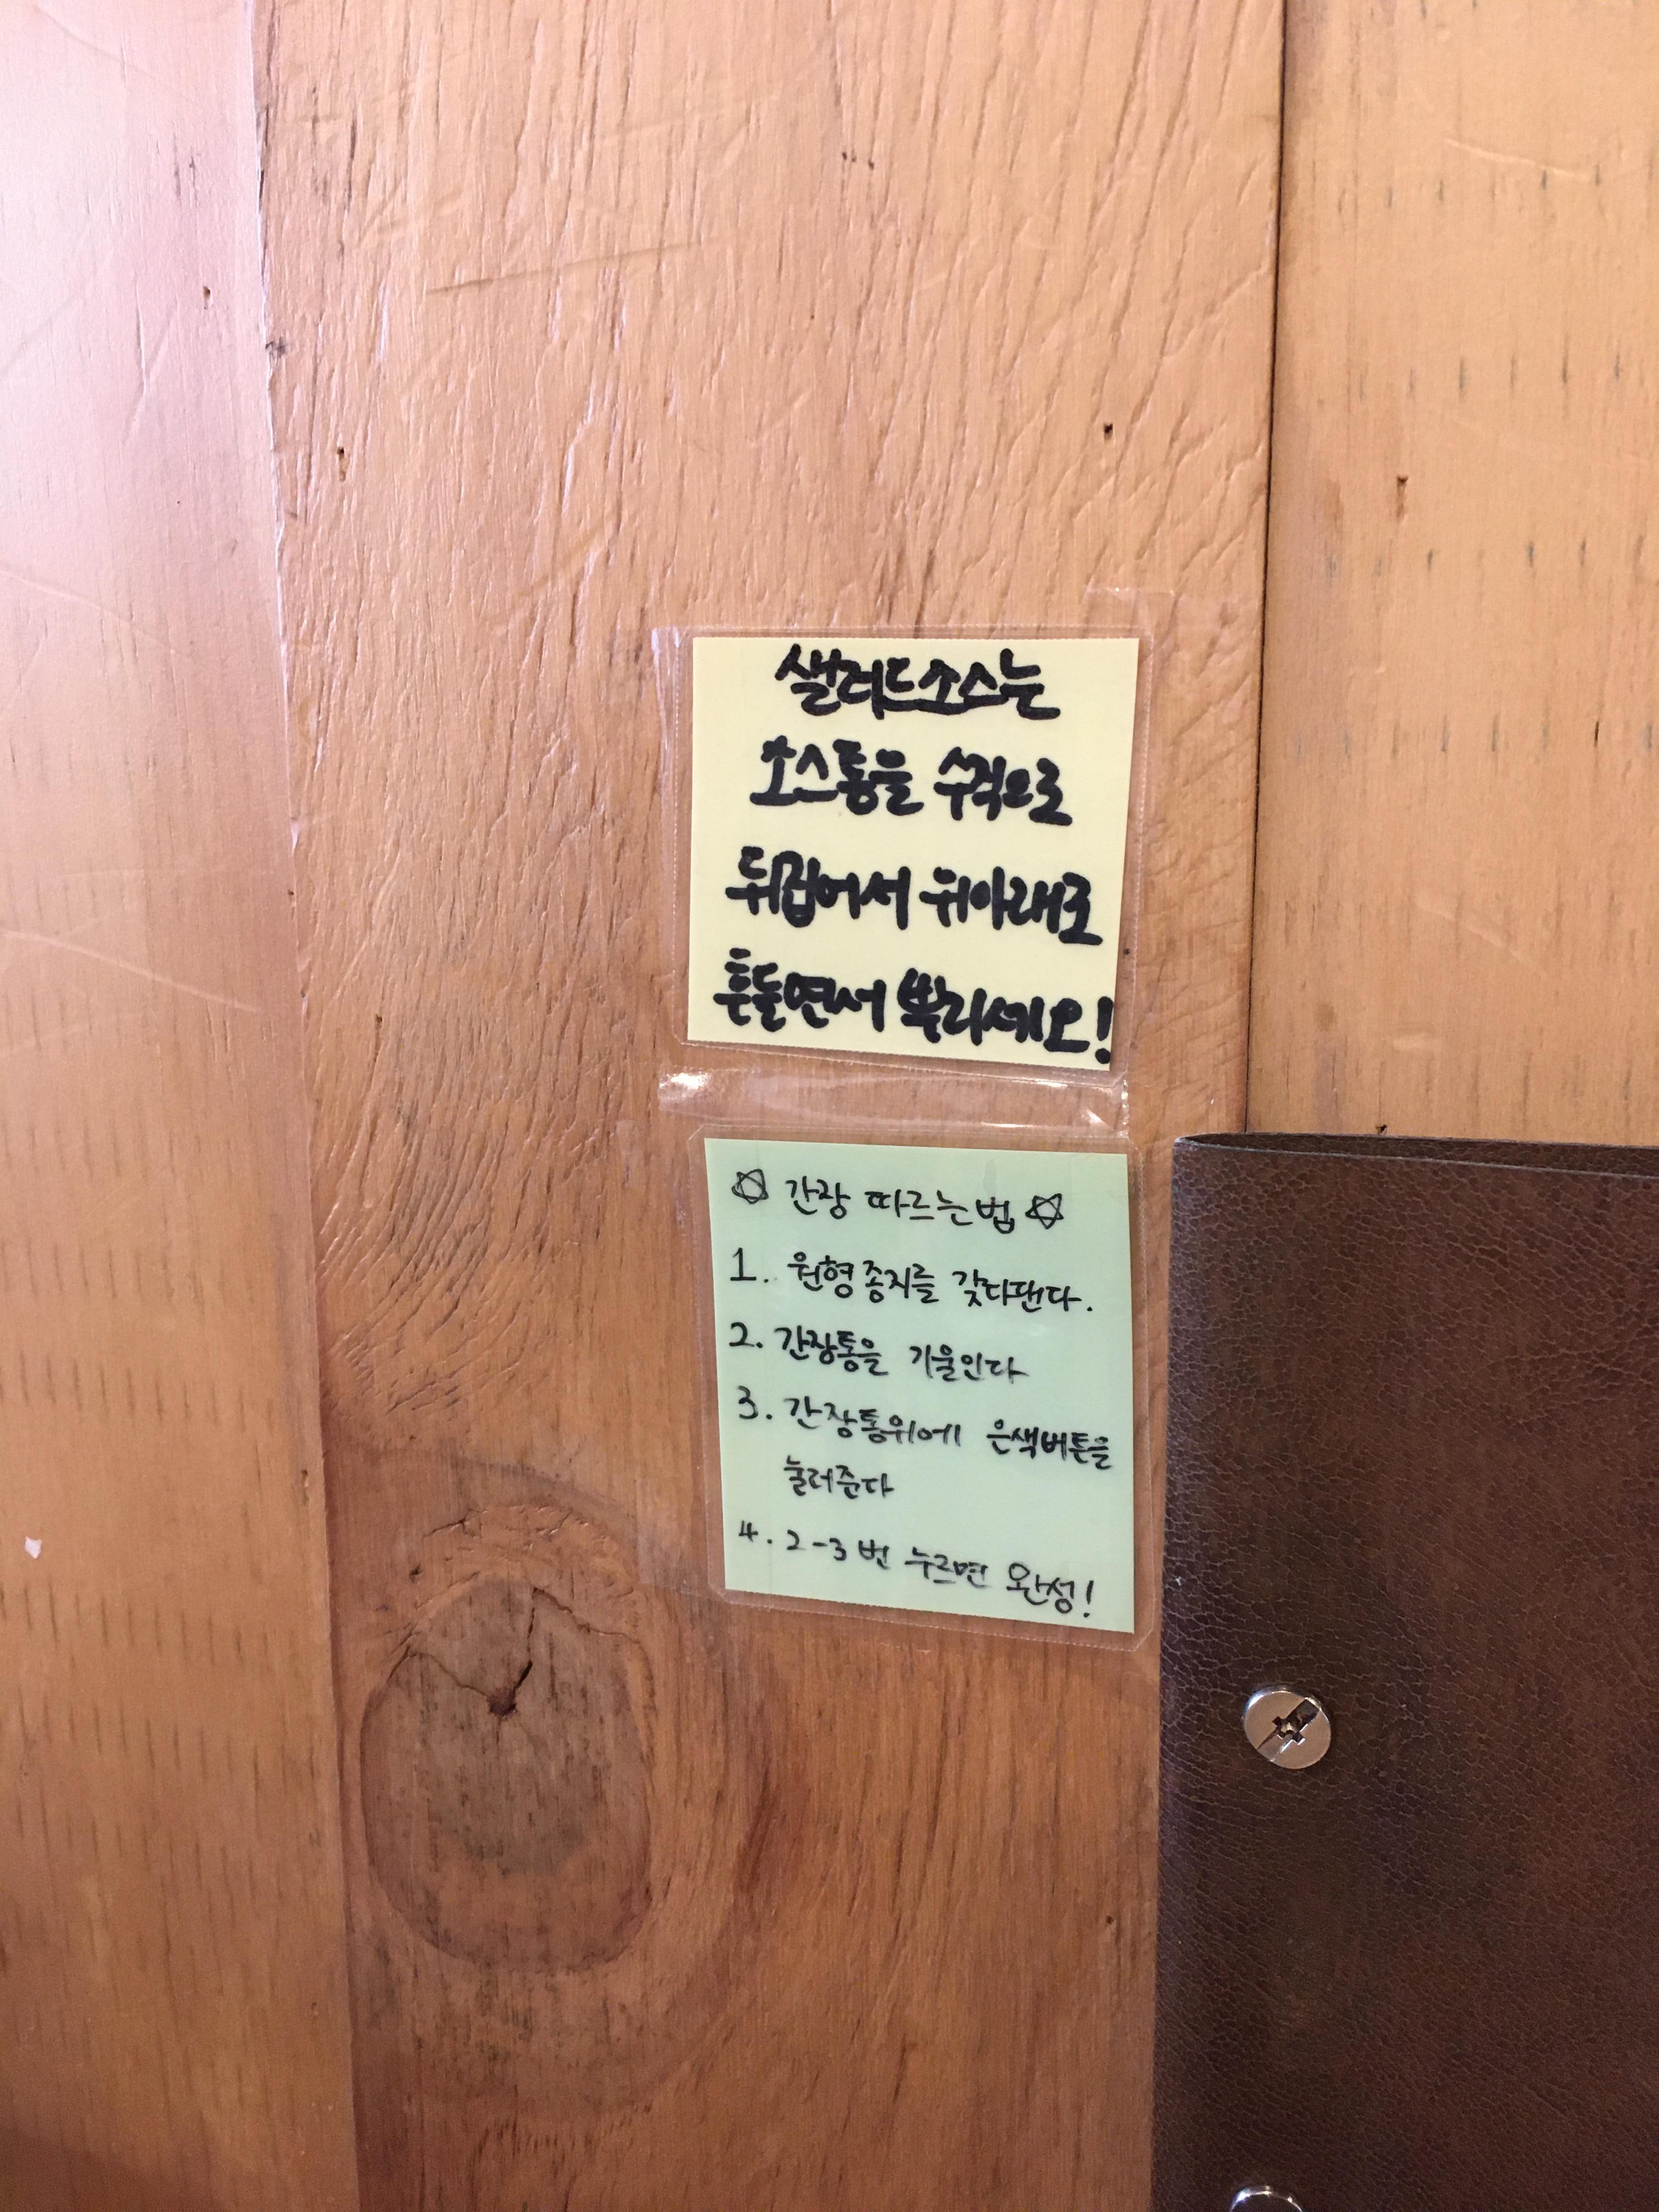 샐러드소스는
소스통을 수직으로
뒤집어서 위아래로
흔들면서 뿌리세요!
☆ 간장 따르는법 ☆
1. 원형종지를 갖다댄다.
2. 간장통을 기울인다
3. 간장통위에 은색버튼을
눌러준다
4. 2-3번 누르면 완성!